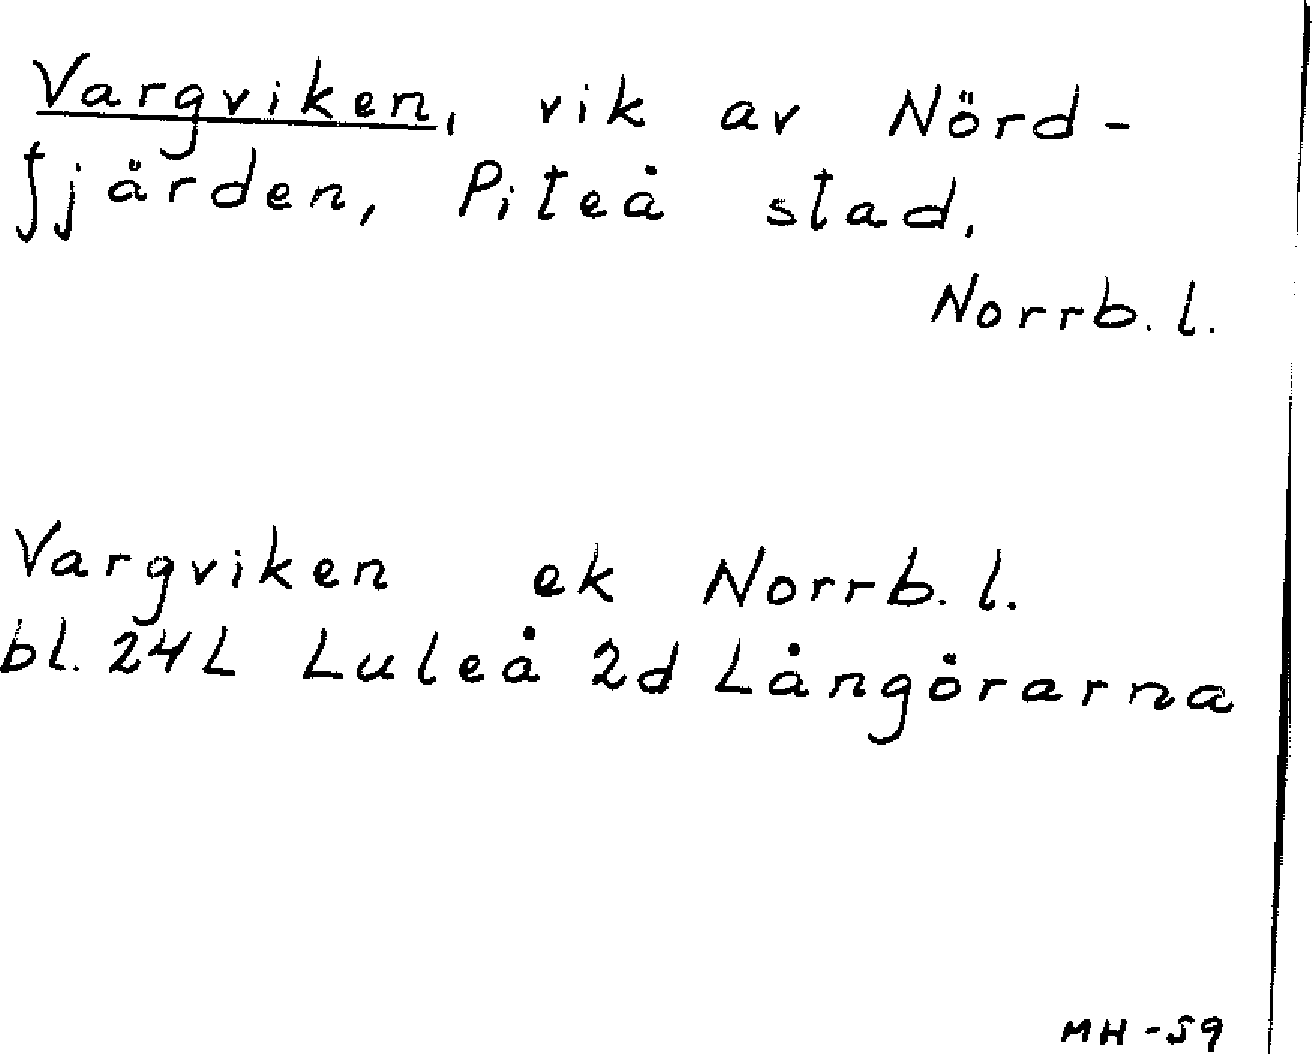 Vargviken, vik av Nörd-
fjärden, Piteå stad,
Norrb. l.
Vargviken ek Norrb. l.
bl. 24L Luleå 2d Långörarna
MH-59